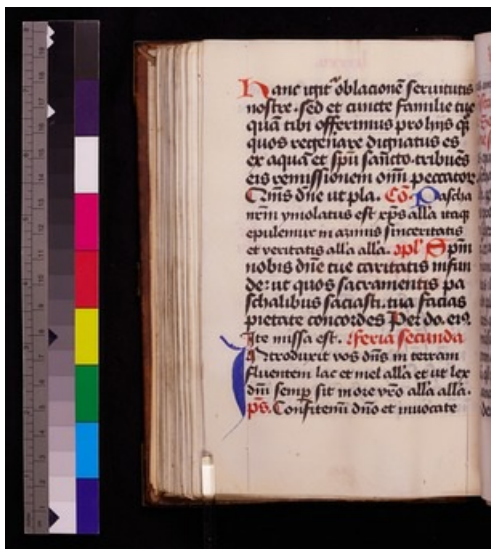 Hanc igit᷑ oblacionē seruitutis
nostre. sed et cuncte familie tue
quā tibi offerimus pro hijs q̄
quos regen̄are dignatus es
ex aqua et spū sancto. tribuēs
eis remissionem om̄ peccator
Qm̄s dn̄e ut pla. Cō. Pascha
nr̄m ymolatus est xp̄s alla itaq
epulemur in azimis sinceritatis
et veritatis alla alla. 2pl' Spm̄
nobis dn̄e tue caritatis infun
de: ut quos sacramentis pa
schalibus saciasti. tua facias
pietate concordes Per do. eiꝰ.
Ite missa est. Feria secunda
Introduxit vos dn̄s in terram
fluentem lac et mel alla et ut lex
dn̄i semp̄ sit in ore vr̄o alla alla.
ps. Confitemī dn̄o et inuocate